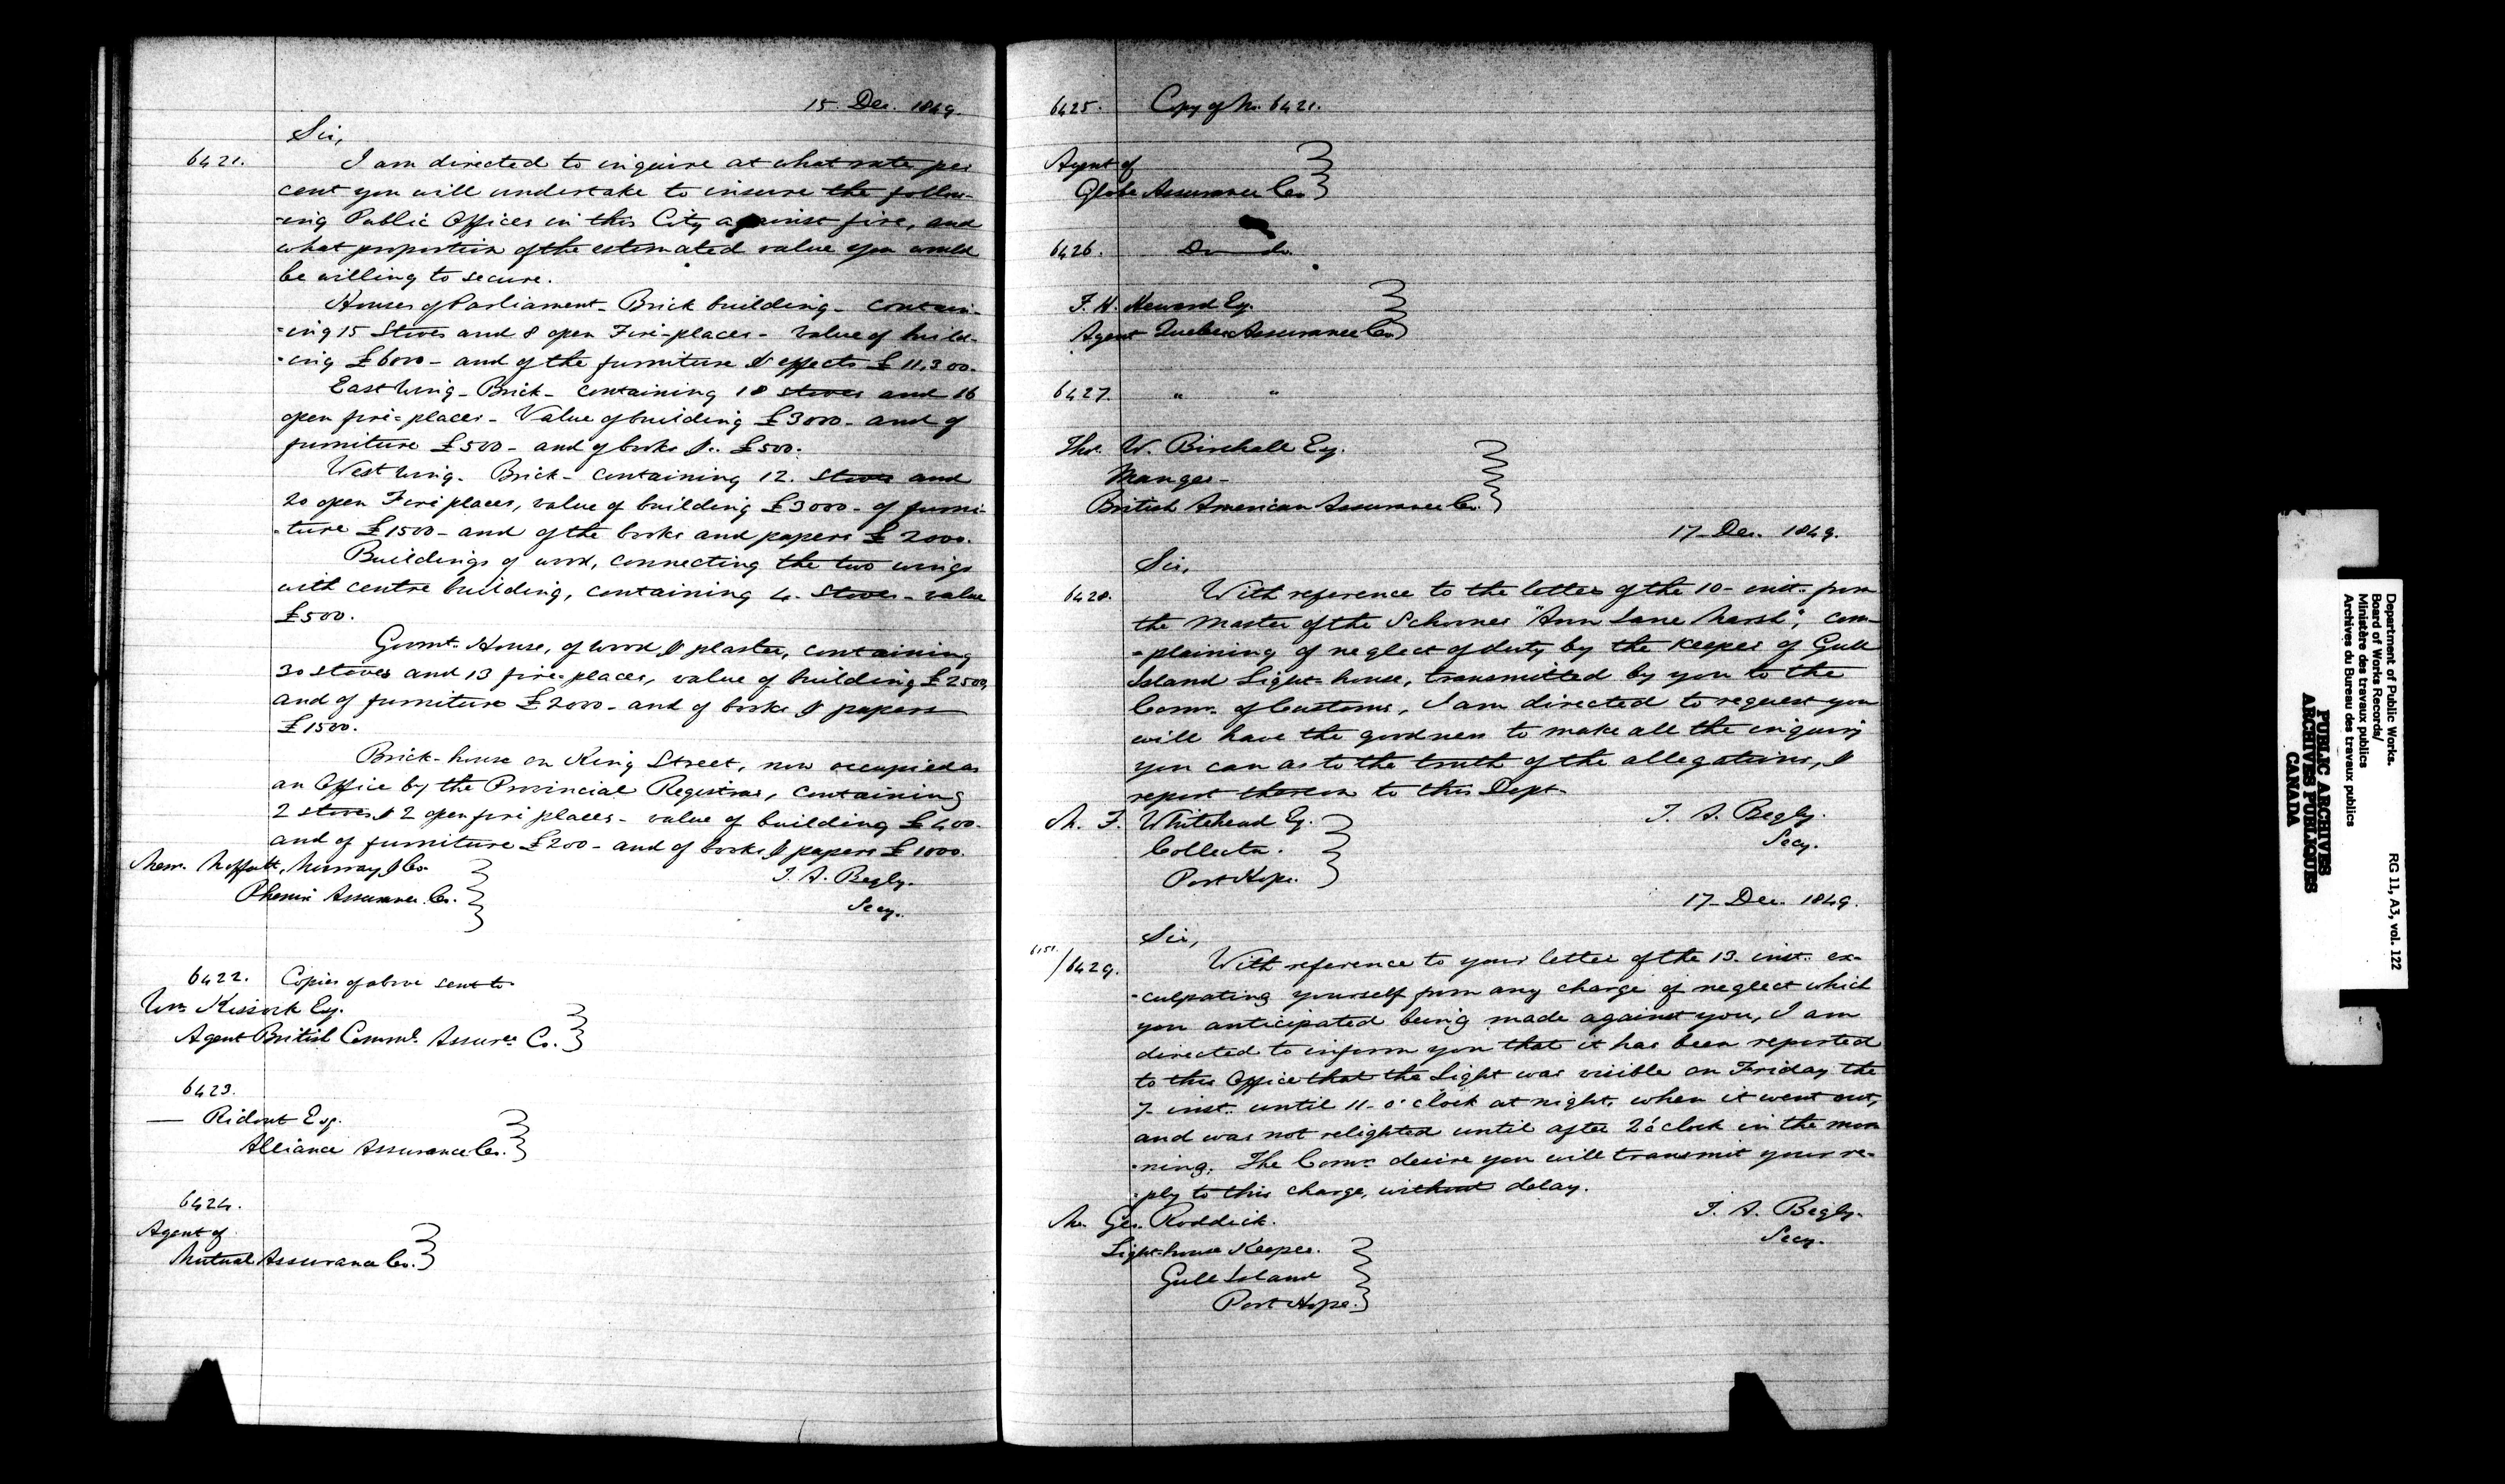 15 Dec. 1849.
Sir,
6421. I am directed to inquire at what rate per
cent you will undertake to insure the follow-
-ing Public Offices in this City against fire, and
what proportion of the estimated value you would
be willing to secure.
Houses of Parliament - Brick building - contain-
-ing 15 Stoves and 8 open Fire-places - value of build-
-ing £6000 - and of the furniture & effects £11,300.
East Wing - Brick - containing 18 stoves and 16
open fire-places - Value of building £3000 - and of
furniture £500 - and of books &c. £500.
West Wing - Brick - containing 12. Stoves and
20 open Fire places, value of building £3000 - of furni-
-ture £1500 - and of the books and papers £2000.
Buildings of wood, connecting the two wings
with centre building, containing 4. Stoves - value
£500.
Govmt. House, of wood & plaster, containing
30 stoves and 13 fire-places, value of building £2500,
and of furniture £2000 - and of books & papers
£1500.
Brick-house on King Street, now occupied as
an Office by the Provincial Registrar, containing
2 stoves & 2 open fire places - value of building £400.
and of furniture £200 - and of books & papers £1000.
Messr. Moffatt, Murray & Co.
Phenix Assurance Co.
T. A. Begly.
Secy.
6422. Copies of above sent to
Wm. Kissock Esq.
Agent British Comml. Assurce Co.
6423.
— Ridout Esq.
Alliance Assurance Co.
6424.
Agent of
Mutual Assurance Co.
6425. Copy of No. 6421.
Agent of
Globe Assurance Co
6426. Do do.
F. H. Heward Esq.
Agent Quebec Assurance Co
6427. " "
Thos. W. Birchall Esq.
Manger -
British American Assurance Co.
17 - Dec. 1849.
Sir,
6428. With reference to the letter of the 10 - inst. from
the Master of the Schooner "Ann Jane Marsh", com-
-plaining of neglect of duty by the Keeper of Gull
Island Light-house, transmitted by you to the
Comr. of Customs, I am directed to request you
will have the goodness to make all the inquiry
you can as to the truth of the allegations, &
report thereon to this Dept.
M. F. Whitehead Esq.
Collector.
Port Hope.
T. A. Begly.
Secy.
17 - Dec. 1849.
Sir,
6151./6429. With reference to your letter of the 13. inst. ex-
-culpating yourself from any charge of neglect which
you anticipated being made against you, I am
directed to inform you that it has been reported
to this Office that the Light was visible on Friday the
7 - inst. until 11 - o'clock at night, when it went out,
and was not relighted until after 2 o'clock in the mor
-ning. The Comrs. desire you will transmit your re-
-ply to this charge, without delay.
Mr. Geo. Roddick.
Light-house Keeper.
Gull Island
Port Hope.
T. A. Begly.
Secy.
Department of Public Works.
Board of Works Records/
Ministère des travaux publics
Archives du Bureau des travaux publics
RG 11, A3, vol. 122
PUBLIC ARCHIVES
ARCHIVES PUBLIQUES
CANADA